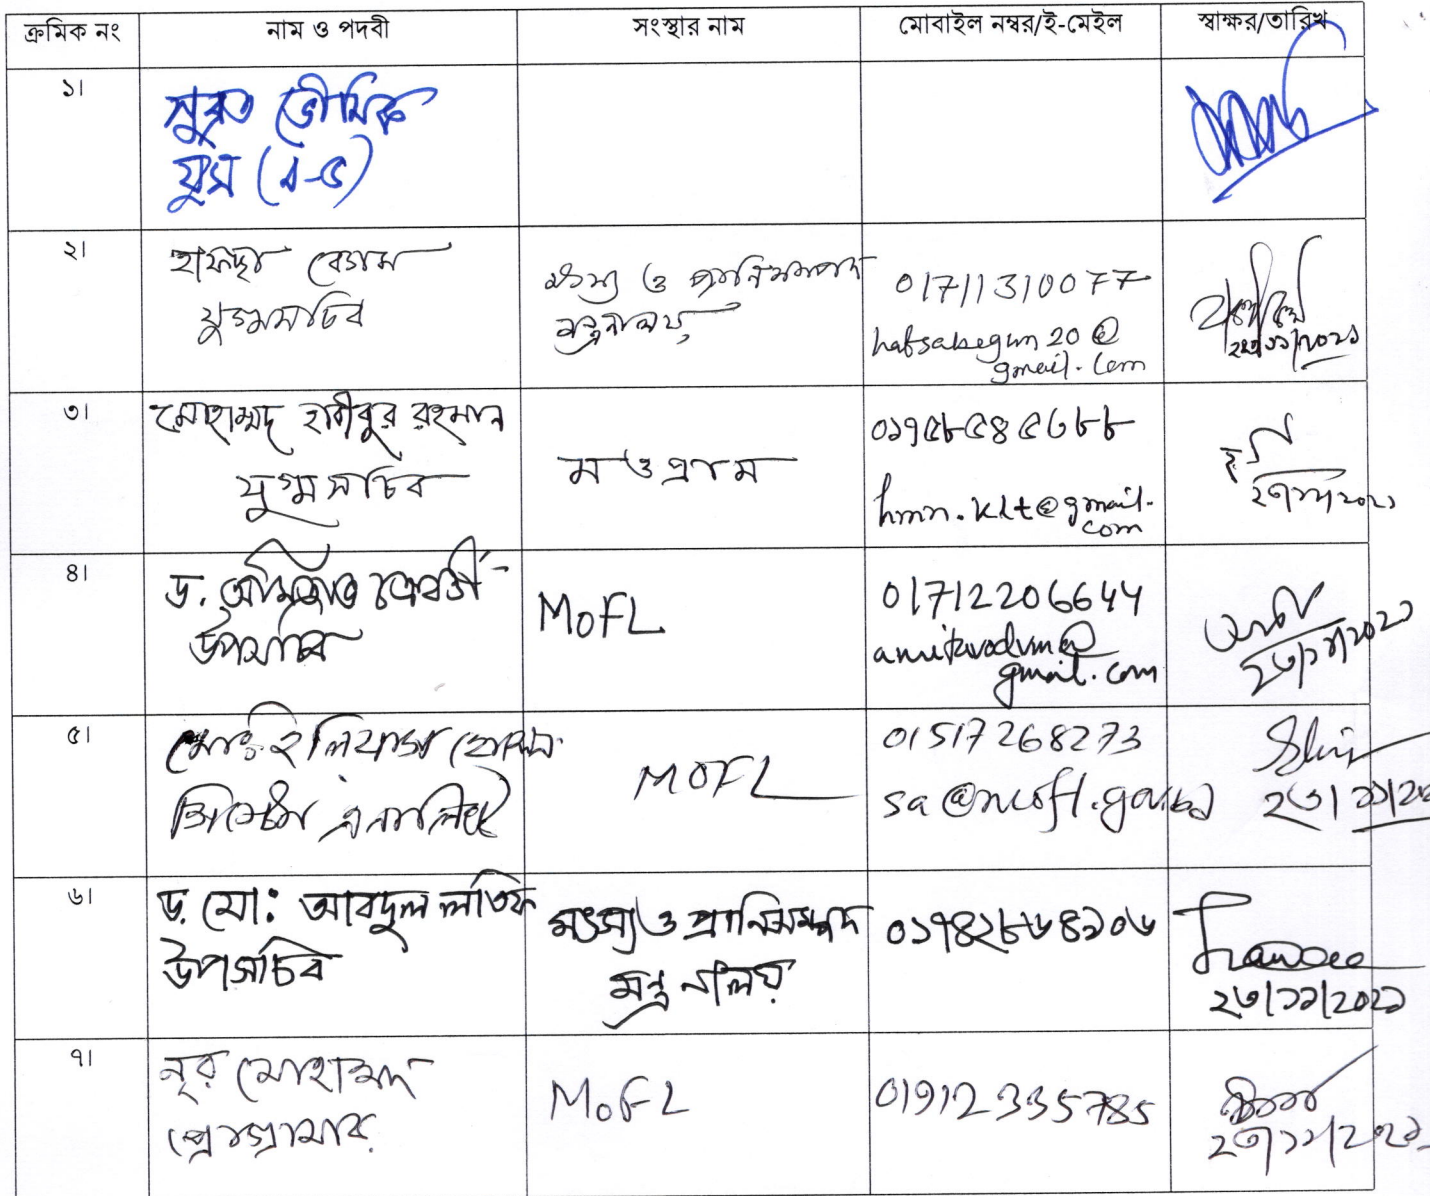 ক্রমিক নং নাম ও পদবী সংস্থার নাম মোবাইল নম্বর/ই-মেইল স্বাক্ষর/তারিখ
১।
সুব্রত ভৌমিক
যুস
২।
হাফছা বেগম
যুগ্মসচিব
মৎস্য ও প্রানিসম্পদ
মন্ত্রনালয়
01711310077
hafsabegum20@
gmail.com
২৩/১১/২০২১
৩।
মোহাম্মদ হাবীবুর রহমান
যুগ্মসচিব
ম ও প্রাম
০১৭৫৮৫৪৫৬৮৮
hmn.klt@gmail.
com
২৩/১১/২০২১
৪।
ড. অমিতাভ চক্রবর্তী
উপসচিব
MOFL
01712206644
amitavodvm@
gmail.com
২৩/১১/২০২১
৫।
মোঃ ইলিয়াস হোসেন
সিস্টেম এনালিস্ট
MOFL
01517268273
sa@mofl.gov.bd
৬।
ড. মো: আবদুল লতিফ
উপসচিব
মৎস্য ও প্রানিসম্পদ
মন্ত্রনালয়
০১৭৪২৮৬৪১০৬
২৩/১১/২০২১
৭।
নূর মোহাম্মদ
প্রোগ্রামার
MoFL
01912335785
২৩/১১/২০২১